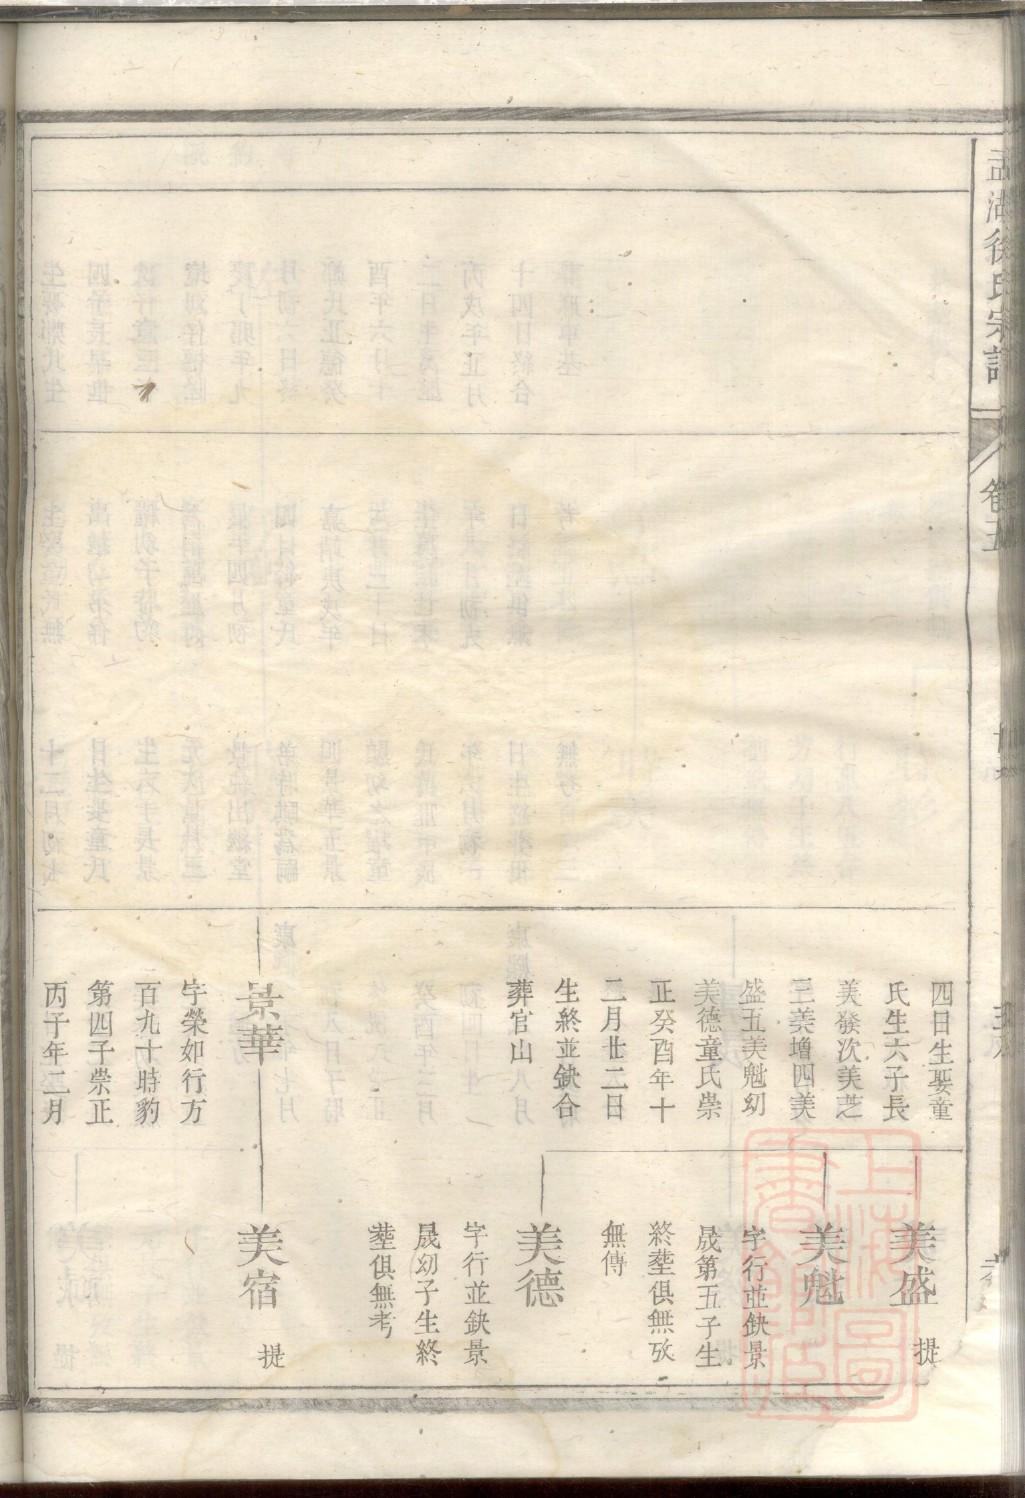 孟湖徐氏宗譜
卷五
四日生娶童
氏生六子長
美發次美芝
三美增四美
盛五美魁幼
美德童氏崇
正癸酉年十
二月廿二日
生終並缺合
葬官山
景華
字榮如行方
百九十時豹
第四子崇正
丙子年二月
美盛
提
美魁
字行並缺景
晟第五子生
終塟俱無攷
無傳
美德
字行並缺景
晟幼子生終
塟俱無考
美宿
提
上海圖書館藏